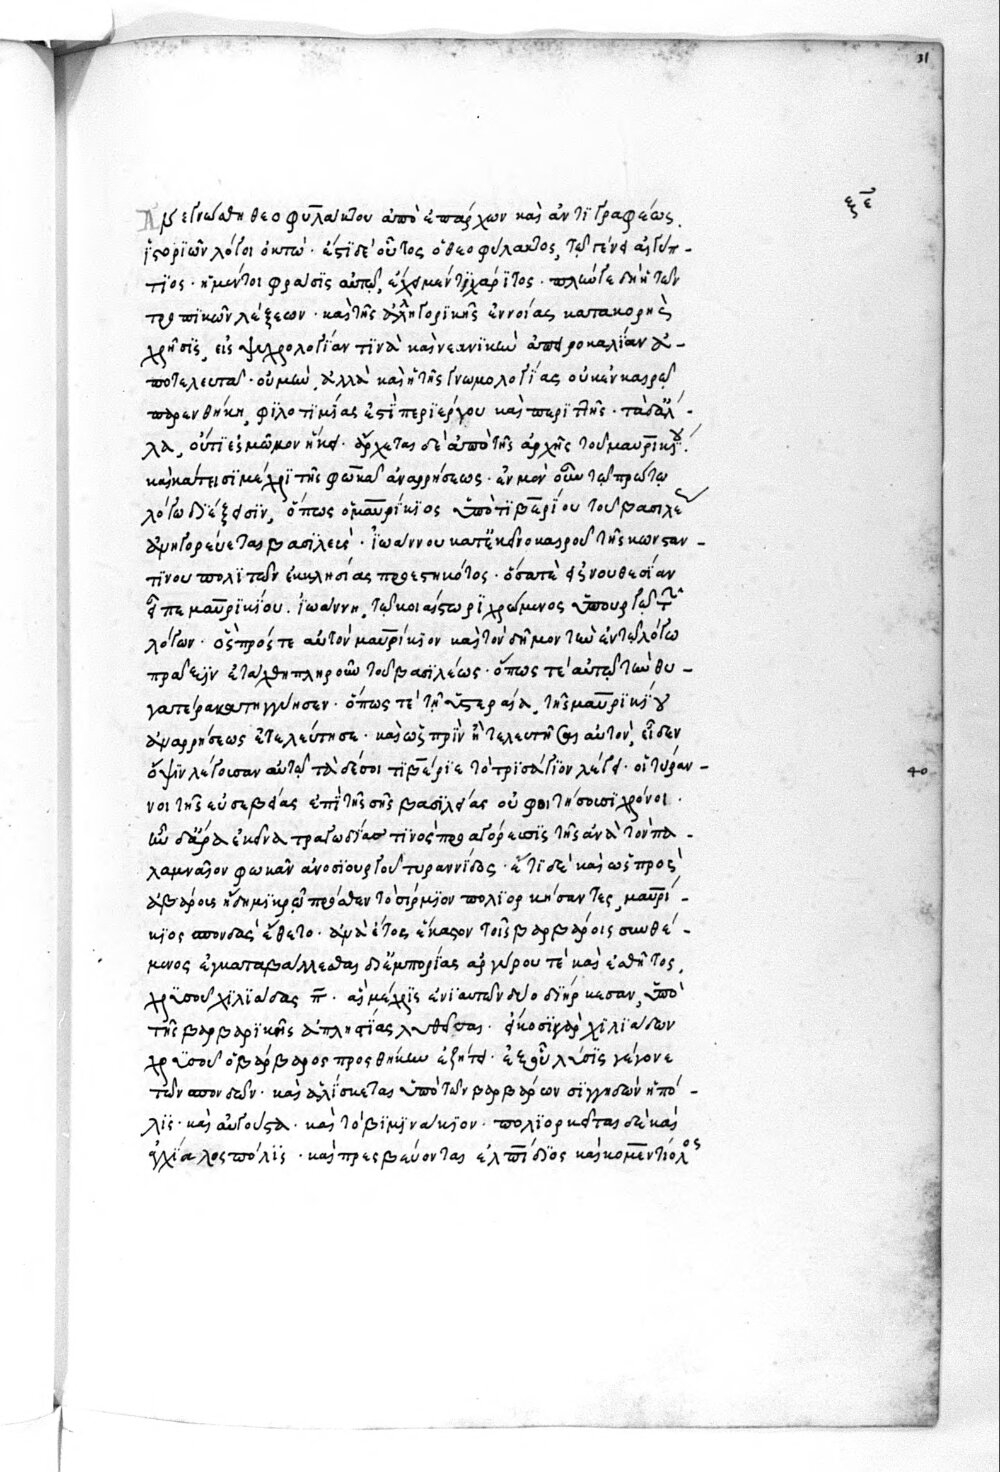 31
ξε
Ἀνεγνώσθη θεοφυλάκτου ἀπὸ ἐπάρχων καὶ ἀντιγραφέως
ἱστοριῶν λόγοι ὀκτώ · ἔστι δὲ οὗτος ὁ θεοφύλακτος, τῷ γένει αἰγύπ-
τιος · ἡ μέντοι φράσις αὐτῷ, ἔχει μέν τι χάριτος · πλὴν γε δὴ ἡ τῶν
τροπικῶν λέξεων · καὶ τῆς ἀλληγορικῆς ἐννοίας κατακορὴς
χρῆσις, εἰς ψυχρολογίαν τινὰ καὶ νεανικὴν ἀπειροκαλίαν ἀ-
ποτελευτᾷ · οὐ μὴν ἀλλὰ καὶ ἡ τῆς γνωμολογίας οὐκ ἐν καιρῷ
παρενθήκη, φιλοτιμίας ἐστὶ περιέργου καὶ περιττῆς · τὰ δ' ἄλ-
λα, οὔτι εἰς μῶμον ἥκει · ἄρχεται δὲ ἀπὸ τῆς ἀρχῆς τοῦ μαυρικίου ·
καὶ κάτεισι μέχρι τῆς φωκᾶ ἀναρρήσεως · ἐν μὲν οὖν τῷ πρώτῳ
λόγῳ διέξεισιν, ὅπως ὁ μαυρίκιος ὑπὸ τιβερίου τοῦ βασιλέως
ἀνηγορεύεται βασιλεύς · ἰωάννου κατ' ἐκεῖνο καιροῦ τῆς κωνσταν-
τίνου πολιτῶν ἐκκλησίας προεστηκότος · ὅσα τε εἰς νουθεσίαν
εἶπε μαυρικίου · ἰωάννῃ, τῷ κοιαίστωρι χρώμενος ὑπουργῷ τῶν
λόγων · ὃς πρός τε αὐτὸν μαυρίκιον καὶ τὸν δῆμον τὴν ἐν τῷ λόγῳ
πρᾶξιν ἐτάχθη πληροῦν τοῦ βασιλέως · ὅπως τε αὐτῷ τὴν θυ-
γατέρα κατηγγύησεν · ὅπως τε τῇ ὑστεραίᾳ, τῆς μαυρικίου
ἀναρρήσεως ἐτελεύτησε · καὶ ὡς πρὶν ἢ τελευτῆσαι αὐτόν, εἶδεν
ὄψιν λέγουσαν αὐτῷ τάδε σοι τιβέριε τὸ τρισάγιον λέγει · οἱ τύραν-
40
νοι τῆς εὐσεβείας ἐπὶ τῆς σῆς βασιλείας οὐ φοιτήσουσι χρόνοι ·
ὧν δ' ἄρα ἐκεῖνα τραγῳδίας τινὸς προαγόρευσις τῆς ἀνὰ τὸν πα-
λαμναῖον φωκᾶν ἀνοσιουργοῦ τυραννίδος · ἔτι δὲ καὶ ὡς πρὸς
ἀβάρους ἤδη μικρῷ πρόσθεν τὸ σίρμιον πολιορκήσαντες, μαυρί-
κιος σπονδὰς ἔθετο · ἀνὰ ἔτος ἕκαστον τοῖς βαρβάροις συνθέ-
μενος ἐγκαταβάλλεσθαι δι' ἐμπορίας ἀργύρου τε καὶ ἐσθῆτος,
χρυσοῦ χιλιάδας π · αἳ μέχρις ἐνιαυτῶν δύο διήρκεσαν, ὑπὸ
τῆς βαρβαρικῆς ἀπληστίας λυθεῖσαι · εἴκοσι γὰρ χιλιάδων
χρυσοῦ ὁ βάρβαρος προσθήκην ἐζήτει · ἐξ οὗ λύσις γέγονε
τῶν σπονδῶν · καὶ ἁλίσκεται ὑπὸ τῶν βαρβάρων σιγγηδὼν ἡ πό-
λις · καὶ αὔγουστα · καὶ τὸ βιμινάκιον · πολιορκεῖται δὲ καὶ
ἀγχίαλος πόλις · καὶ πρεσβεύονται ἐλπίδιος καὶ κομεντίολος